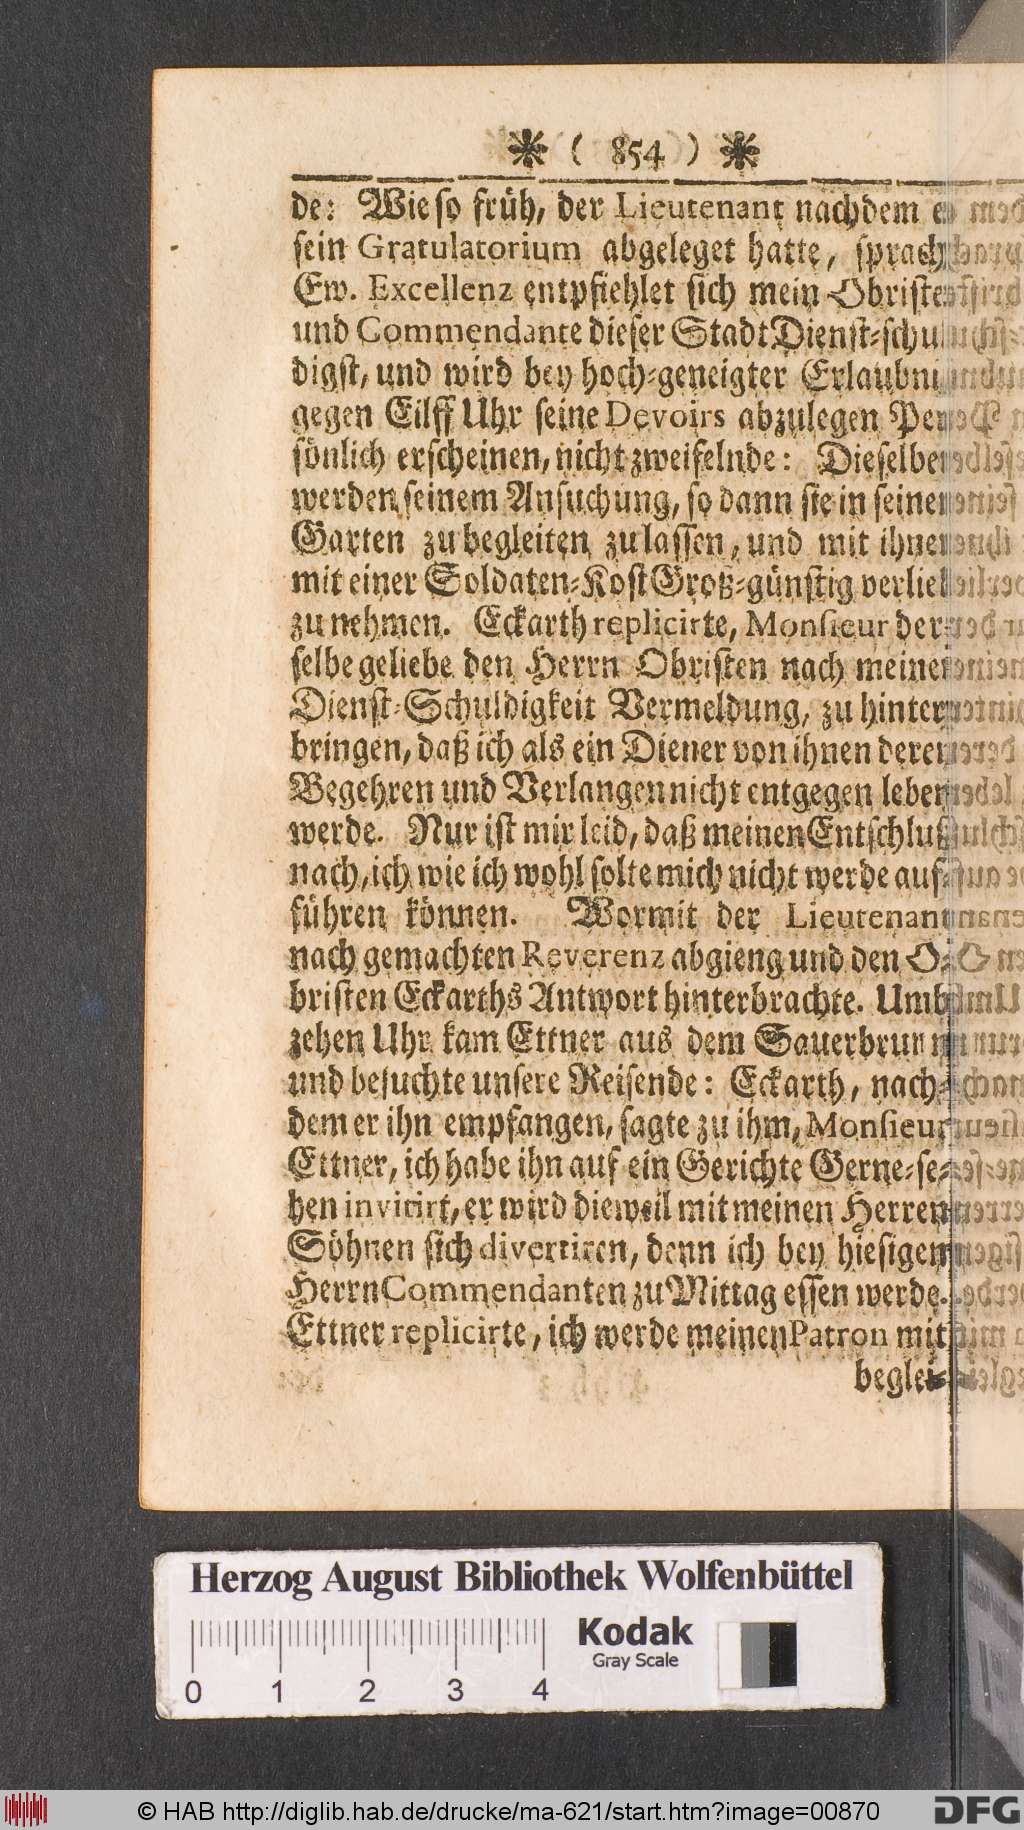 ( 854 )
de: Wie so früh, der Lieutenant nachdem e
sein Gratulatorium abgeleget hatte, sprach
Ew. Excellenz entpfiehlet sich mein Obriste
und Commendante dieser Stadt Dienst-schul
digst, und wird bey hoch-geneigter Erlaubni
gegen Eilff Uhr seine Devoirs abzulegen Per
sönlich erscheinen, nicht zweifelnde: Dieselbe
werden seinem Ansuchung, so dann sie in seine
Garten zu begleiten zu lassen, und mit ihne
mit einer Soldaten-Kost Groß-günstig verlieb
zu nehmen. Eckarth replicirte, Monsieur der-
selbe geliebe den Herrn Obristen nach meiner
Dienst-Schuldigkeit Vermeldung, zu hinter-
bringen, daß ich als ein Diener von ihnen deren
Begehren und Verlangen nicht entgegen leben
werde. Nur ist mir leid, daß meinen Entschluß
nach, ich wie ich wohl solte mich nicht werde auf-
führen können. Wormit der Lieutenant
nach gemachten Reverenz abgieng und den O-
bristen Eckarths Antwort hinterbrachte. Umb
zehen Uhr kam Ettner aus dem Sauerbrunn
und besuchte unsere Reisende: Eckarth, nach-
dem er ihn empfangen, sagte zu ihm, Monsieur
Ettner, ich habe ihn auf ein Gerichte Gerne-se-
hen invitirt, er wird dieweil mit meinen Herren
Söhnen sich divertiren, denn ich bey hiesigen
Herrn Commendanten zu Mittag essen werde.
Ettner replicirte, ich werde meinen Patron mit
beglei-
Herzog August Bibliothek Wolfenbüttel
Kodak
Gray Scale
0 1 2 3 4
© HAB http://diglib.hab.de/drucke/ma-621/start.htm?image=00870
DFG